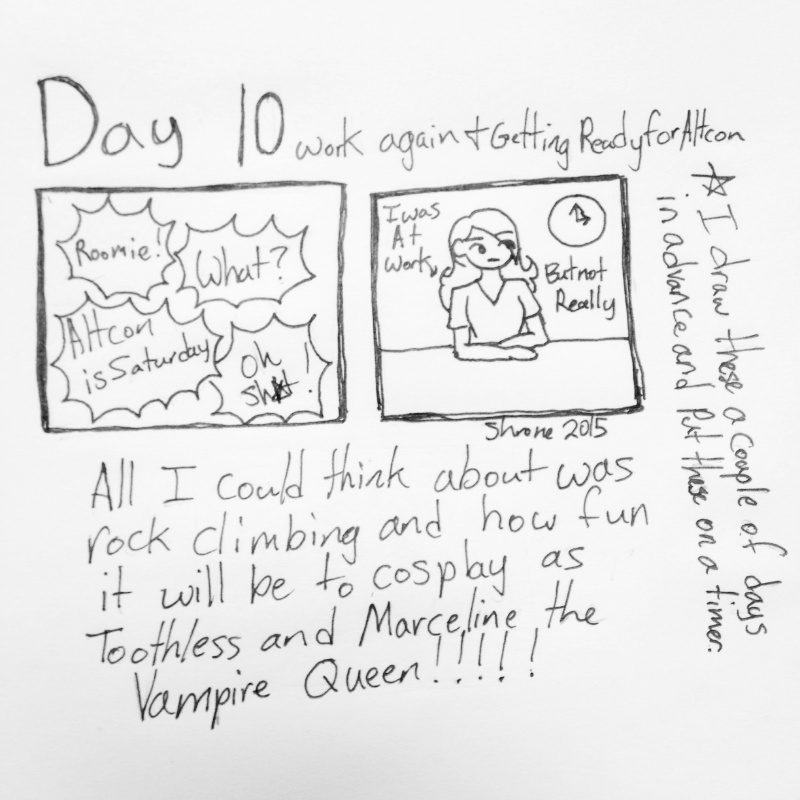 Day 10 work again + Getting Ready for Altcon
Roomie!
What?
Altcon
is Saturday
Oh
shit!
I was
At
work
But not
Really
Shrone 2015
All I could think about was
rock climbing and how fun
it will be to cosplay as
Toothless and Marceline the
Vampire Queen!!!!!
☆ I draw these a couple of days
in advance and put these on a timer.